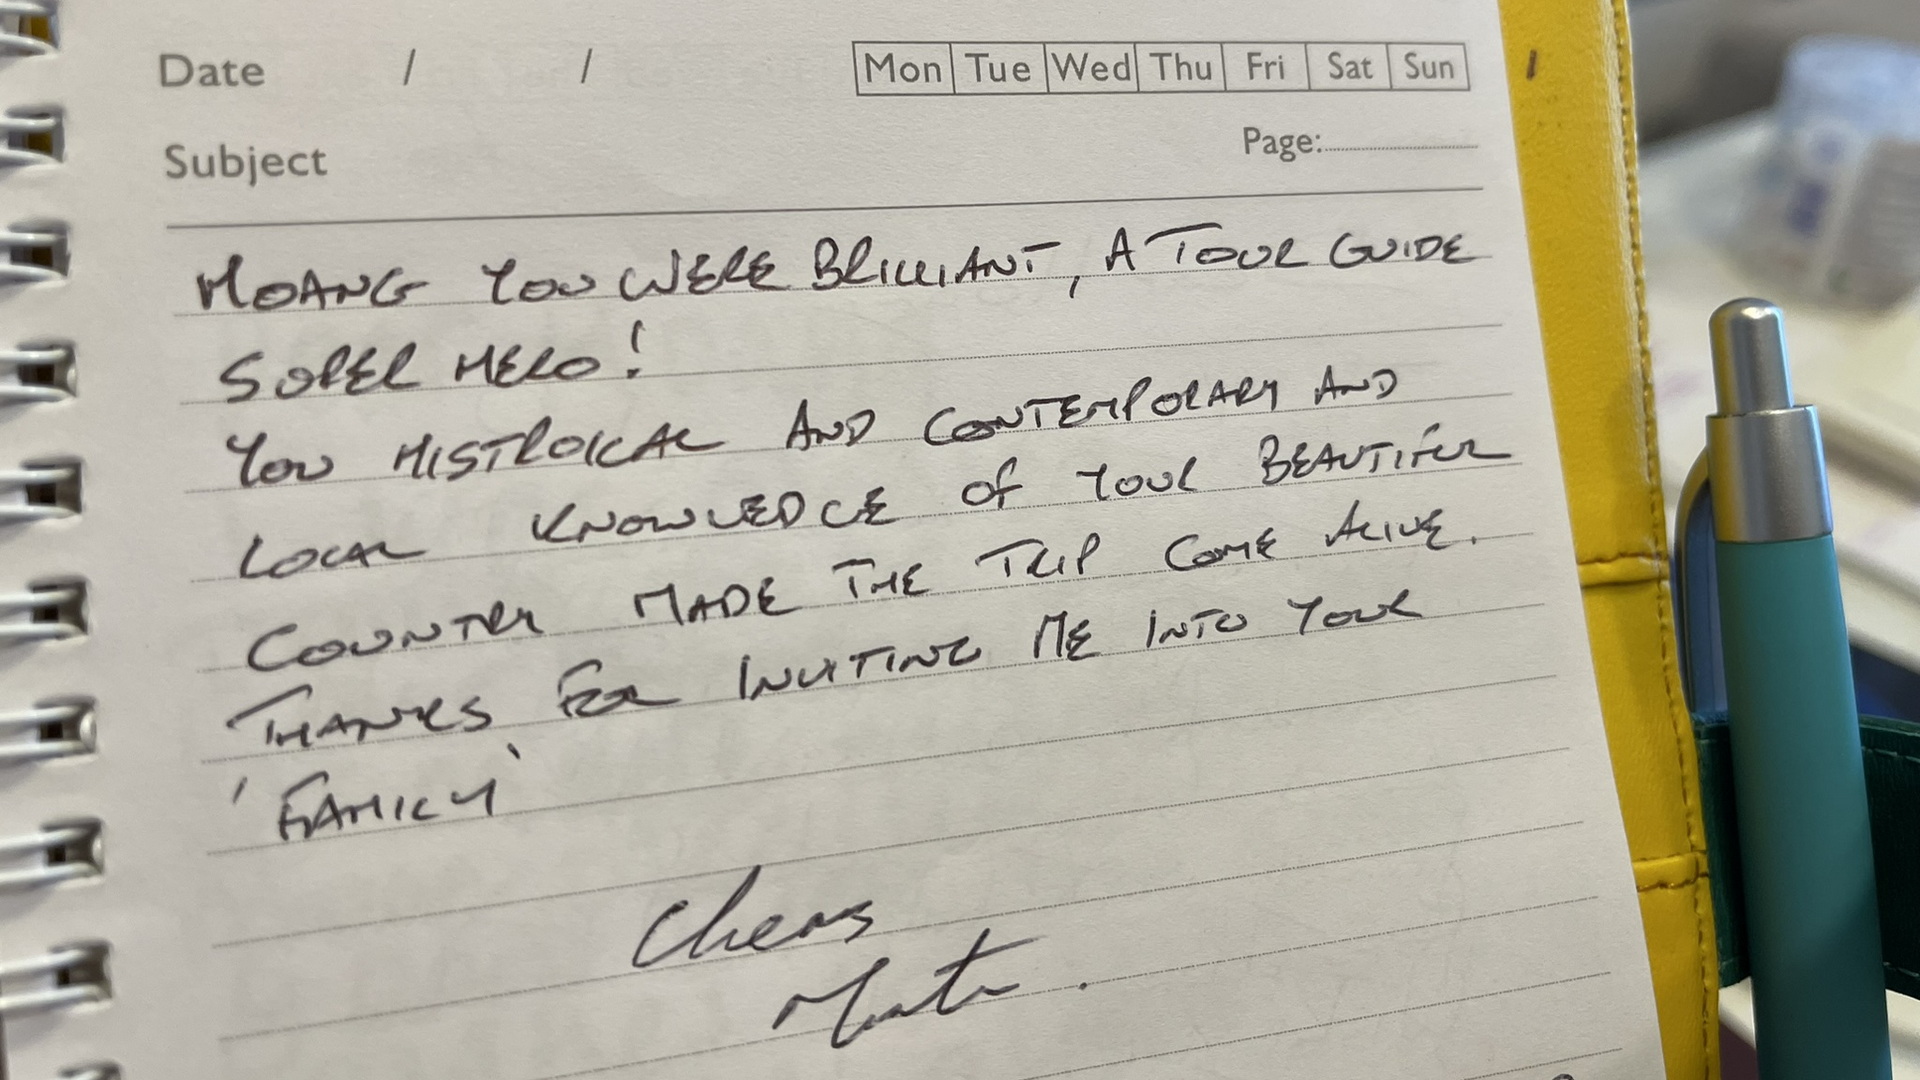 Date / /
Mon Tue Wed Thu Fri Sat Sun
Subject
Page:
HOANG YOU WERE BRILLIANT, A TOUR GUIDE
SUPER HERO!
YOU HISTROICAL AND CONTEMPORARY AND
LOCAL KNOWLEDGE OF YOUR BEAUTIFUL
COUNTRY MADE THE TRIP COME ALIVE.
THANKS FOR INVITING ME INTO YOUR
'FAMILY'
Cheers